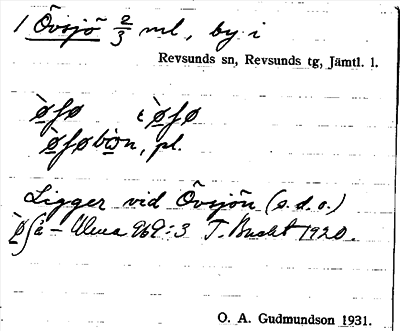 1 Övsjö 2/3 ml, by i
Revsunds sn, Revsunds tg, Jämtl. l.
ø̀ʃø ɩ ø̀ʃø
ø̀ʃøbɩ̀øn, pl.
Ligger vid Övsjön (s.d.o.)
969:3 T. Bucht 1920.
O. A. Gudmundson 1931.